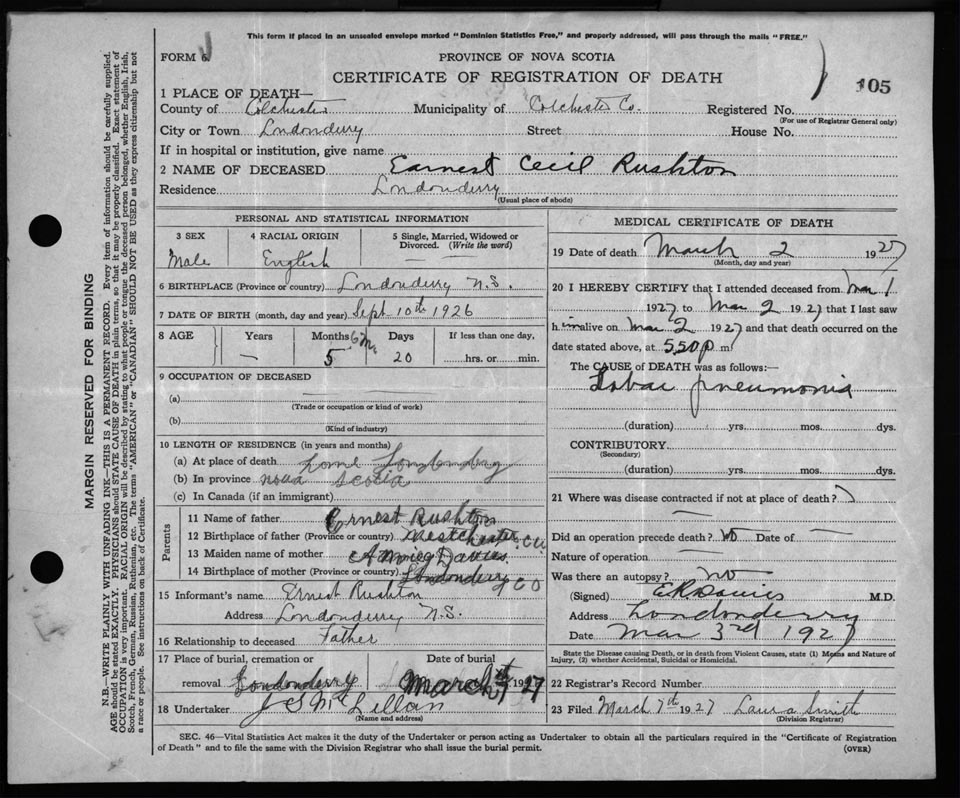 This form if placed in an unsealed envelope marked "Dominion Statistics Free," and properly addressed, will pass through the mails "FREE."
FORM 6
PROVINCE OF NOVA SCOTIA
CERTIFICATE OF REGISTRATION OF DEATH
105
1 PLACE OF DEATH—
County of Colchester Municipality of Colchester Co. Registered No.
(For use of Registrar General only)
City or Town Londonderry Street House No.
If in hospital or institution, give name
2 NAME OF DECEASED Earnest Cecil Rushton
Residence Londonderry
(Usual place of abode)
PERSONAL AND STATISTICAL INFORMATION
3 SEX 4 RACIAL ORIGIN 5 Single, Married, Widowed or Divorced. (Write the word)
Male English — —
6 BIRTHPLACE (Province or country) Londonderry N.S.
7 DATE OF BIRTH (month, day and year) Sept 10th 1926
8 AGE Years Months Days If less than one day,
— 5 20 hrs. or min.
9 OCCUPATION OF DECEASED
(a)
(Trade or occupation or kind of work)
(b)
(Kind of industry)
10 LENGTH OF RESIDENCE (in years and months)
(a) At place of death
(b) In province nova scotia
(c) In Canada (if an immigrant)
Parents
11 Name of father Ernest Rushton
12 Birthplace of father (Province or country) Westchester
13 Maiden name of mother Davies
14 Birthplace of mother (Province or country) Londonderry
15 Informant's name Ernest Rushton
Address Londonderry N.S.
16 Relationship to deceased Father
17 Place of burial, cremation or Date of burial
removal Londonderry March 1927
18 Undertaker
(Name and address)
MEDICAL CERTIFICATE OF DEATH
19 Date of death March 2 1927
(Month, day and year)
20 I HEREBY CERTIFY that I attended deceased from Mar 1
1927 to Mar 2 1927 that I last saw
him alive on Mar 2 1927 and that death occurred on
date stated above, at 5.50 p m
The CAUSE of DEATH was as follows:—
Lobar pneumonia
(duration) yrs. mos. dys.
CONTRIBUTORY
(Secondary)
(duration) yrs. mos. dys.
21 Where was disease contracted if not at place of death?
Did an operation precede death? no Date of —
Nature of operation —
Was there an autopsy? no
(Signed) M.D.
Address Londonderry
Date Mar 3rd 1927
State the Disease causing Death, or in death from Violent Causes, state (1) Means and Nature of
Injury, (2) whether Accidental, Suicidal or Homicidal.
22 Registrar's Record Number
23 Filed March 7th 1927 Laura Smith
(Division Registrar)
SEC. 46—Vital Statistics Act makes it the duty of the Undertaker or person acting as Undertaker to obtain all the particulars required in the "Certificate of Registration
of Death" and to file the same with the Division Registrar who shall issue the burial permit.
(OVER)
MARGIN RESERVED FOR BINDING
N.B.—WRITE PLAINLY WITH UNFADING INK—THIS IS A PERMANENT RECORD. Every item of information should be carefully supplied.
AGE should be stated EXACTLY. PHYSICIANS should STATE CAUSE OF DEATH in plain terms, so that it may be properly classified. Exact statement of
OCCUPATION is very important. RACIAL ORIGIN will be described by stating to what people or tongue the deceased person belonged, whether English, Irish,
Scotch, French, German, Russian, Ruthenian, etc. The terms "AMERICAN" or "CANADIAN" SHOULD NOT BE USED as they express citizenship but not
a race or people. See instructions on back of Certificate.